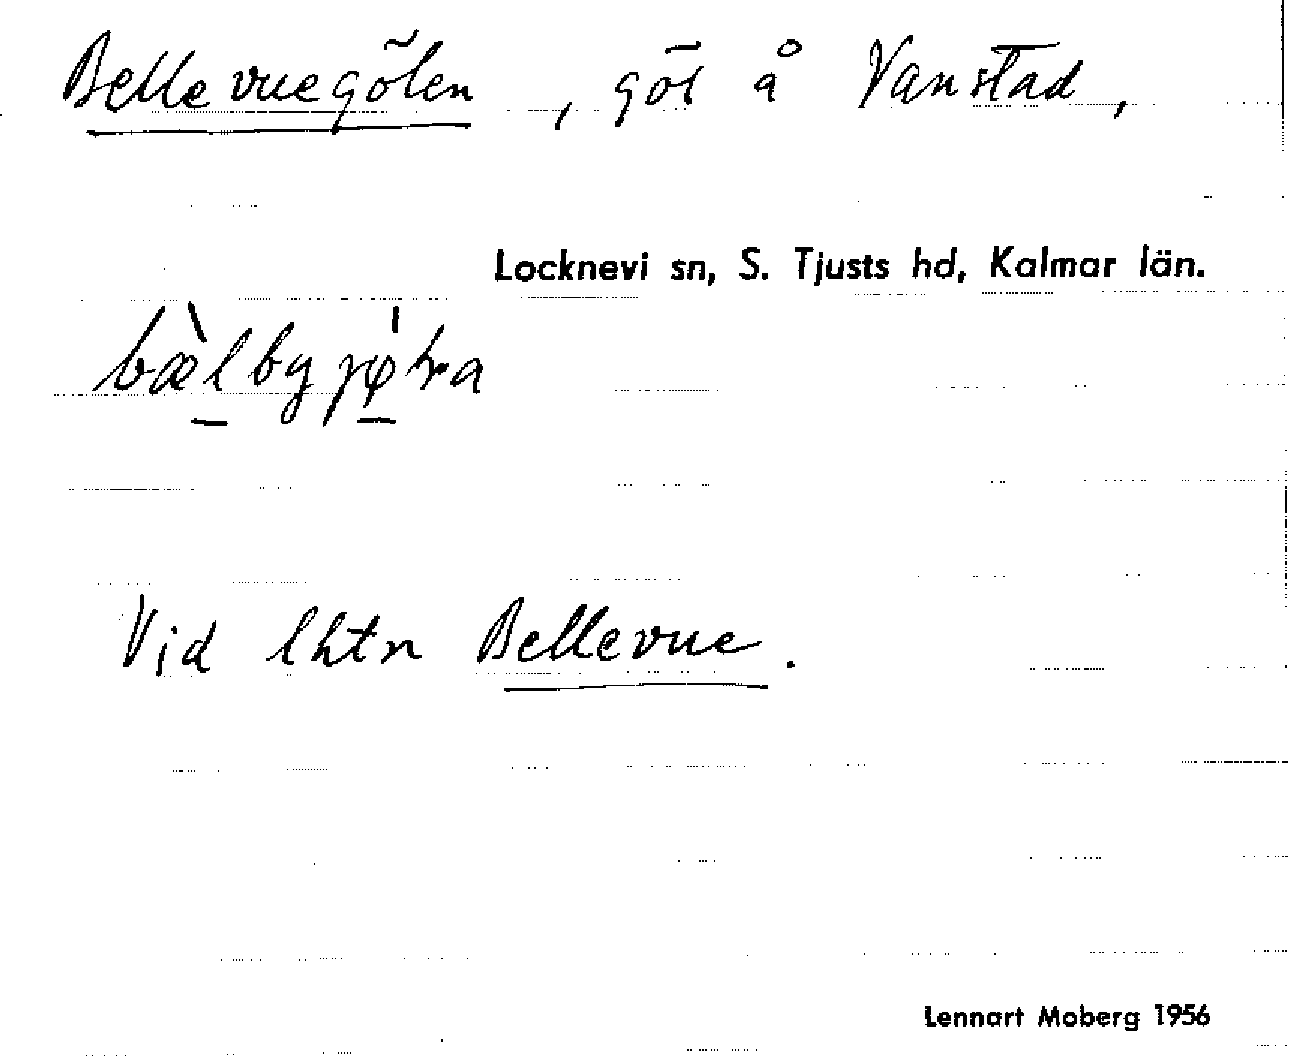 Bellevuegölen, göl å Vanstad,
Locknevi sn, S. Tjusts hd, Kalmar län.
Vid lhtn Bellevue.
Lennart Moberg 1956